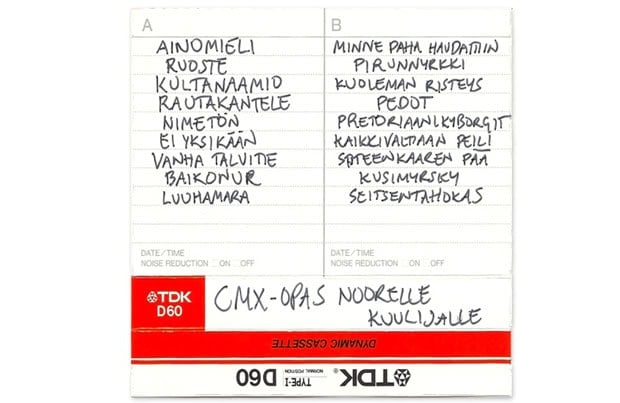 A
AINOMIELI
RUOSTE
KULTANAAMIO
RAUTAKANTELE
NIMETÖN
EI YKSIKÄÄN
VANHA TALVITIE
BAIKONUR
LUUHAMARA
DATE/TIME
NOISE REDUCTION ON OFF
B
MINNE PAHA HAUDATTIIN
PIRUNNYRKKI
KUOLEMAN RISTEYS
PEDOT
PRETORIAANIKYBORGIT
KAIKKIVALTIAAN PEILI
SATEENKAAREN PÄÄ
KUSIMYRSKY
SEITSENTAHOKAS
DATE/TIME
NOISE REDUCTION ON OFF
TDK
D60
CMX-OPAS NUORELLE
KUULIJALLE
DYNAMIC CASSETTE
TDK TYPE-I NORMAL POSITION D60